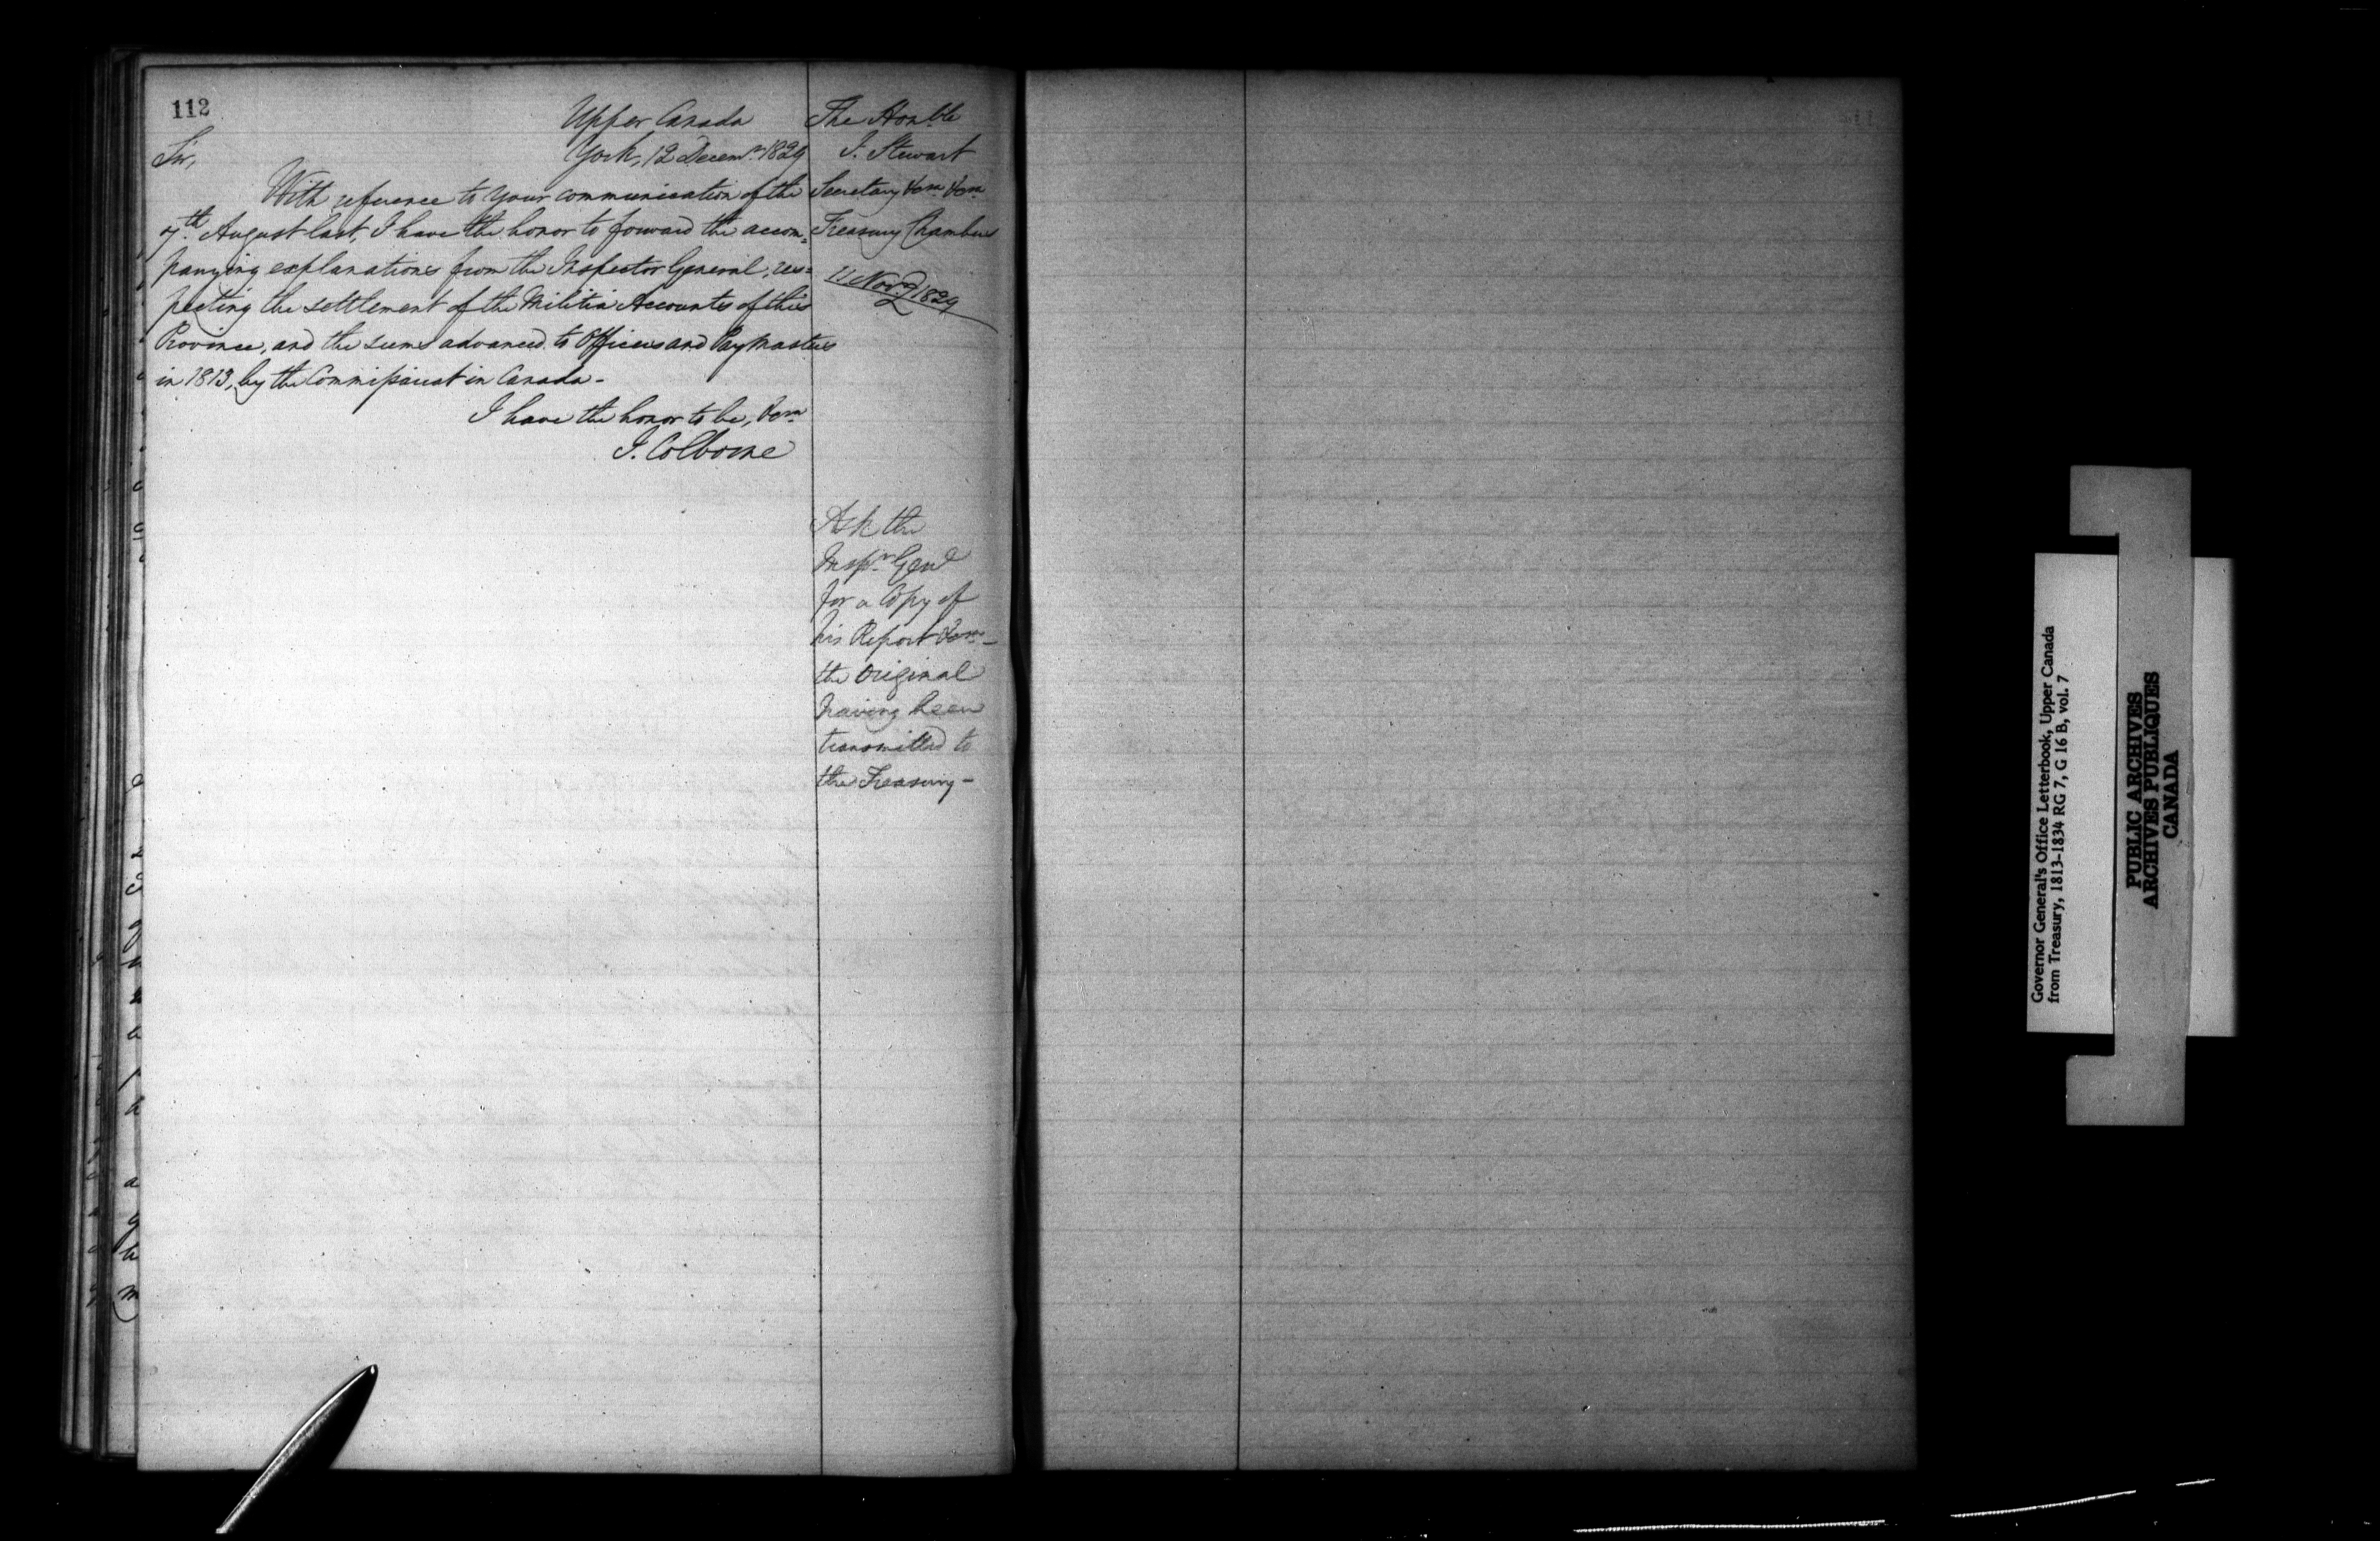 112
Upper Canada
York, 12 Decemr 1829
Sir,
With reference to your communication of the
7th August last, I have the honor to forward the accom=
panying explanations from the Inspector General, res=
pecting the settlement of the Militia Accounts of this
Province, and the sums advanced to Officers and Paymasters
in 1813, by the Commissariat in Canada -
I have the honor to be, &c.
J. Colborne
The Honble
J. Stewart
Secretary &c. &c.
Treasury Chambers
1829
Ask the
Inspr Genl
for a Copy of
his Report &c. -
the Original
having been
transmitted to
the Treasury -
Governor General's Office Letterbook, Upper Canada
from Treasury, 1813-1834 RG 7, G 16 B, vol. 7
PUBLIC ARCHIVES
ARCHIVES PUBLIQUES
CANADA